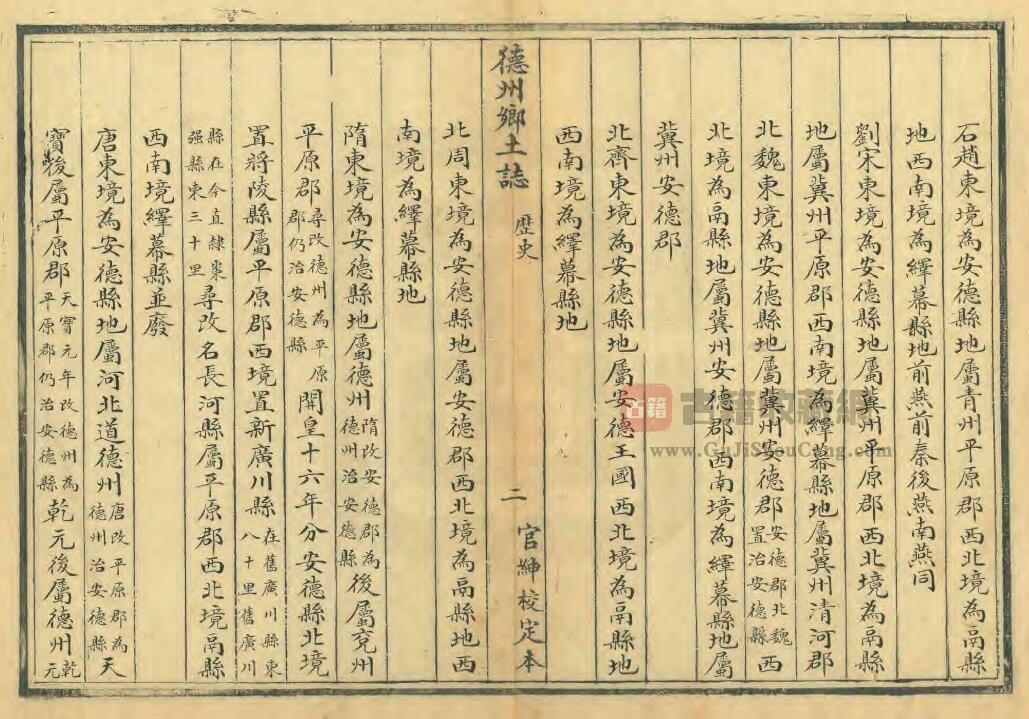 石趙東境為安德縣地屬青州平原郡西北境為鬲縣
地西南境為繹幕縣地前燕前秦後燕南燕同
劉宋東境為安德縣地屬冀州平原郡西北境為鬲縣
地屬冀州平原郡西南境為繹幕縣地屬冀州清河郡
北魏東境為安德縣地屬冀州安德郡安德郡北魏置治安德縣西
北境為鬲縣地屬冀州安德郡西南境為繹幕縣地屬
冀州安德郡
北齊東境為安德縣地屬安德王國西北境為鬲縣地
西南境為繹幕縣地
德州鄉土誌 歷史 二 官紳校定本
北周東境為安德縣地屬安德郡西北境為鬲縣地西
南境為繹幕縣地
隋東境為安德縣地屬德州隋改安德郡為德州治安德縣後屬兗州
平原郡尋改德州為平原郡仍治安德縣開皇十六年分安德縣北境
置將陵縣屬平原郡西境置新廣川縣在舊廣川縣東八十里舊廣川
縣在今直隸棗强縣東三十里尋改名長河縣屬平原郡西北境鬲縣
西南境繹幕縣並廢
唐東境為安德縣地屬河北道德州唐改平原郡為德州治安德縣天
寶後屬平原郡天寶元年改德州為平原郡仍治安德縣乾元後屬德州乾元
古籍
古籍收藏網
www.GuJiShouCang.com